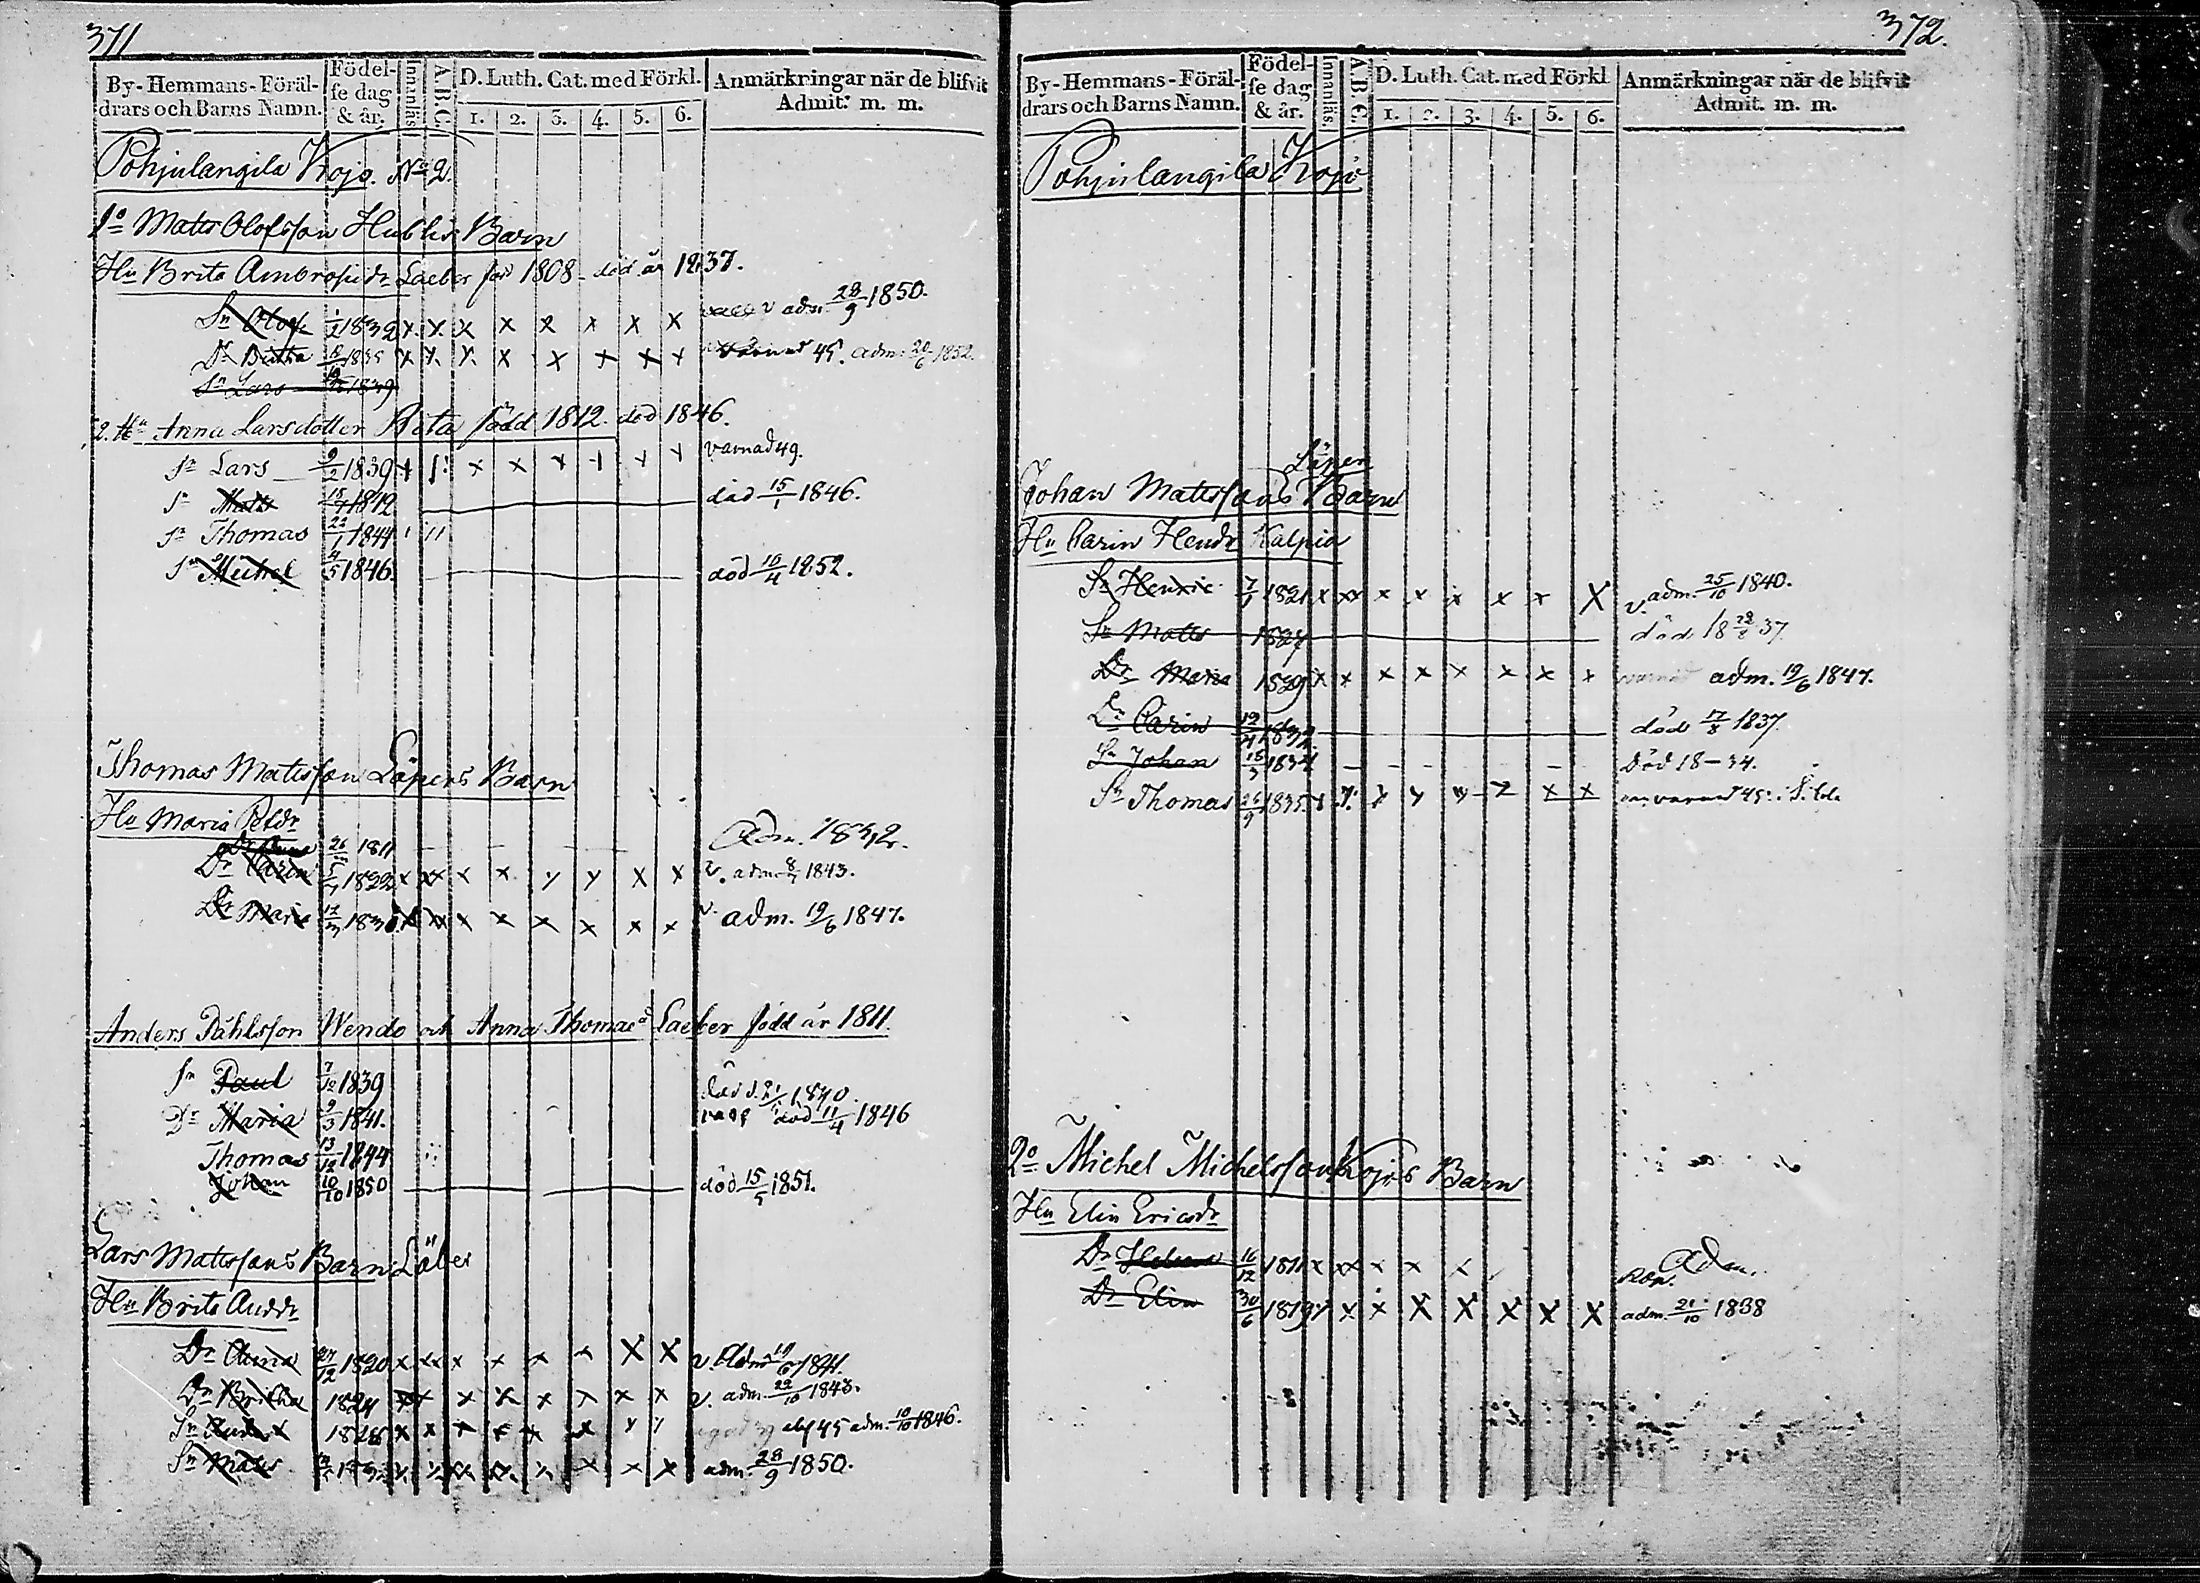 371
By-Hemmans-Föräl-
drars och Barns Namn.
Födel-
se dag
& år.
Innanläs.
A.B.C.
D. Luth. Cat. med Förkl.
1. 2. 3. 4. 5. 6.
Anmärkningar när de blifvit
Admit. m. m.
Pohjulangila Kojo. No 2.
1o Matts Olofsson Hublis Barn
Hu Brita Ambrosidr Laeber född 1808 - död år 1837.
Sn Olof 1/2 1832 x. x. x x x x x x v adm. 28/9 1850.
Dr Britha 1835 x x. x. x x x x x 45. adm. 20/6 1852.
Sn Lars 1839
2. Hu Anna Larsdotter Rita född 1812. död 1846.
Sn Lars 9/2 1839 x x x x x x varnad 49.
Sn Matts 1842 död 15/1 1846.
Sn Thomas 22/1 1844
Sn Michel 4/5 1846. död 16/4 1852.
Thomas Mattsson Läpers Barn
Hu Maria Petdr
Dr Anna 26 1811 Adm. 1832.
Dr Carin 5 1822 x xx x x y y x x v. adm. 8 1843.
Dr Maria 12/3 1830. x xx x x x x x x v. adm. 19/6 1847.
Anders Påhlsson Wendo och Anna Thomaed Laeber född år 1811.
Sn Paul 7/12 1839 död 1840.
Dr Maria 9/3 1841. död 11/4 1846
Thomas 13/12 1844
Johan 10/10 1850 död 15/5 1851.
Lars Mattssons Barn Läber
Hu Brita Anddr
Dr Anna 27/12 1820 x xx x x x x X X v. Adm 19/6 1841.
Dr Britha 1824 xx x x x x x x v. adm. 22/10 1843.
Sn Anders 1826 x x x x x x 45 adm. 18/10 1846.
Sn Matts adm. 28/9 1850.
372.
By-Hemmans-Föräl-
drars och Barns Namn.
Födel-
se dag
& år.
Innanläs.
A.B.C.
D. Luth. Cat. med Förkl
1. 2. 3. 4. 5. 6.
Anmärkningar när de blifvit
Admit. m. m.
Pohjulangila Kojo
Läper
Johan Mattssons Barn
Hu Carin Hendr Kalpia
Sn Henric 7/1 1821 x xx x x x x x X v. adm. 25/10 1840.
Sn Matts 1827 död 18 22/8 37.
Dr Maria 1829 x x x x x x x x adm. 19/6 1847.
Dr Carin 1832 död 17/8 1837.
Sn Johan 15/3 1834 död 18-34.
Sn Thomas 26/9 1835 varnad 45.
2o Michel Michelsson Kojos Barn
Hu Elin Ericsdr
Dr Helena 16/12 1811 x xx x x x Adm.
Dr Elin 30/6 1819 x x x X X X X X adm. 21/10 1838